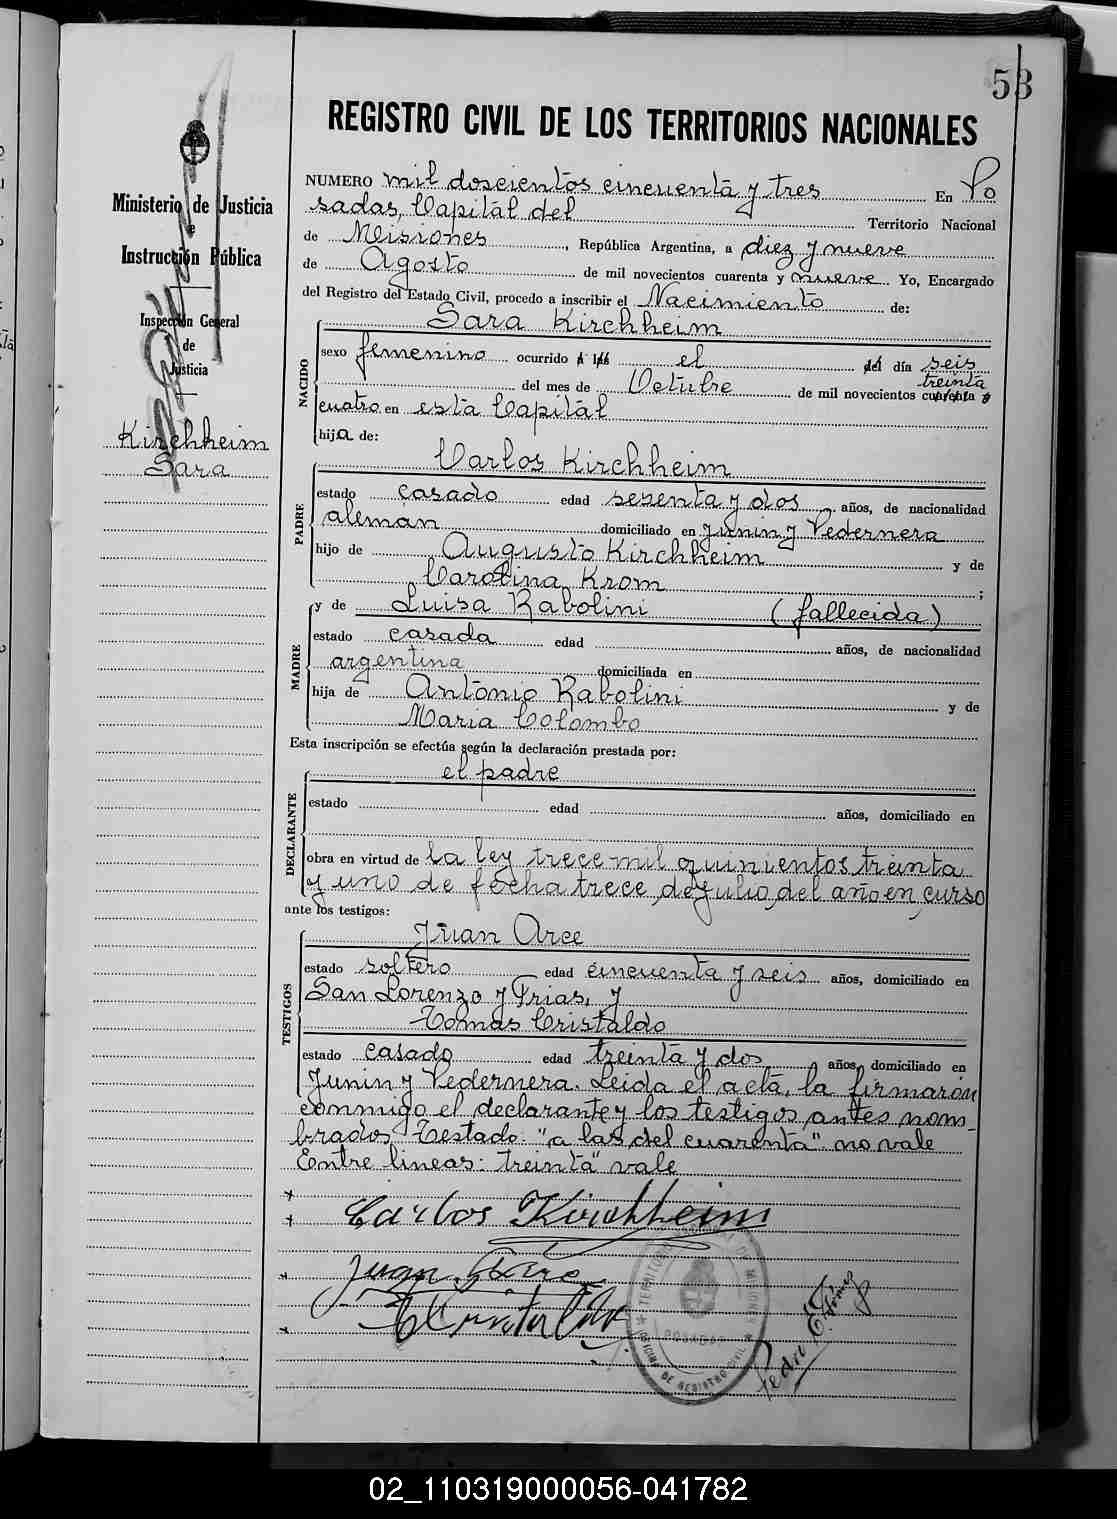 53
REGISTRO CIVIL DE LOS TERRITORIOS NACIONALES
Ministerio de Justicia
e
Instrucción Pública
Inspección General
de
Justicia
Kirchheim
Sara
NUMERO mil doscientos cincuenta y tres En Po
sadas, Capital del Territorio Nacional
de Misiones, República Argentina, a diez y nueve
de Agosto de mil novecientos cuarenta y nueve Yo, Encargado
del Registro del Estado Civil, procedo a inscribir el Nacimiento de:
Sara Kirchheim
NACIDO
sexo femenino ocurrido a las el del día seis
treinta
del mes de Octubre de mil novecientos cuarenta y
cuatro en esta Capital
hija de:
PADRE
Carlos Kirchheim
estado casado edad sesenta y dos años, de nacionalidad
alemán domiciliado en Junin y Pedernera
hijo de Augusto Kirchheim y de
Carolina Krom;
MADRE
y de Luisa Rabolini (fallecida)
estado casada edad años, de nacionalidad
argentina domiciliada en
hija de Antonio Rabolini y de
Maria Colombo
Esta inscripción se efectúa según la declaración prestada por:
DECLARANTE
el padre
estado edad años, domiciliado en
obra en virtud de la ley trece mil quinientos treinta
y uno de fecha trece de Julio del año en curso
ante los testigos:
TESTIGOS
Juan Arce
estado soltero edad cincuenta y seis años, domiciliado en
San Lorenzo y Frias, y
Tomas Cristaldo
estado casado edad treinta y dos años, domiciliado en
Junin y Pedernera. Leida el acta, la firmaron
conmigo el declarante y los testigos antes nom-
brados Testado: "a las del cuarenta" no vale
Entre lineas: "treinta" vale
Carlos Kirchheim
Juan Arce
TERRITORIO NACIONAL DE MISIONES
POSADAS
OFICINA DE REGISTRO CIVIL
Pedro E.
02_110319000056-041782